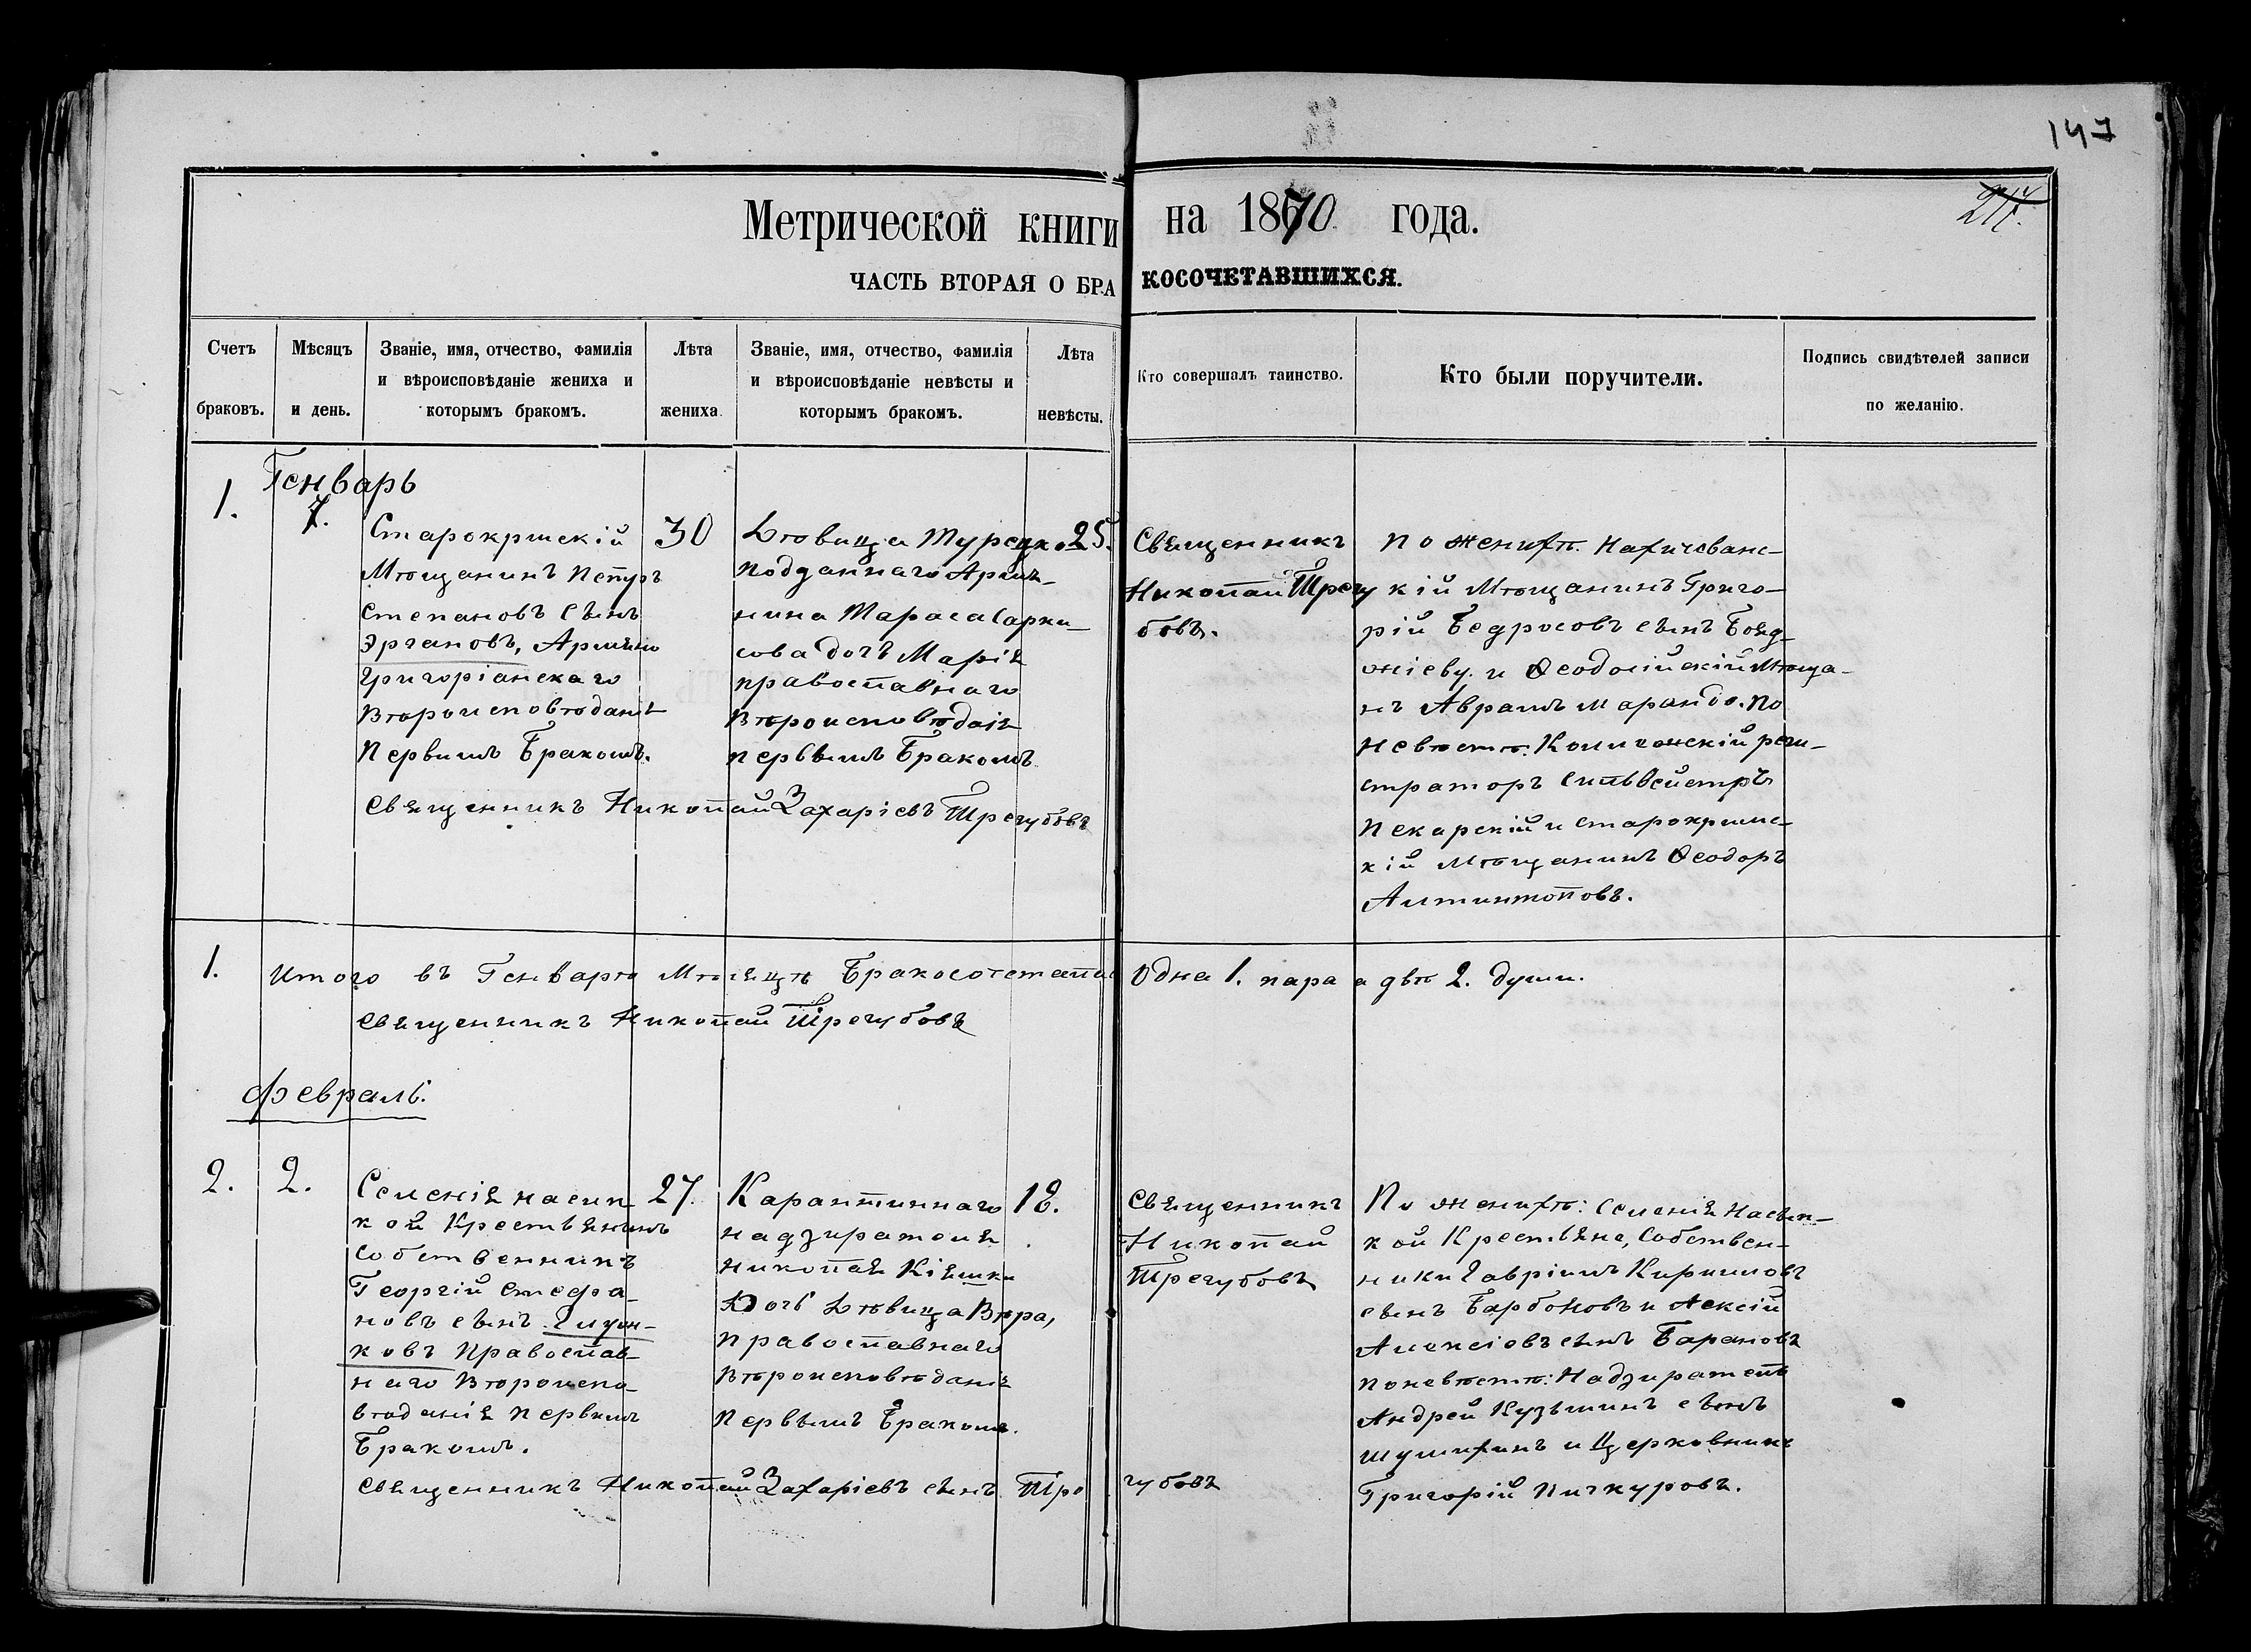 147
214.
Метрической книги на 1870 года.
ЧАСТЬ ВТОРАЯ О БРАКОСОЧЕТАВШИХСЯ.
Счетъ браковъ.
Мѣсяцъ и день.
Званіе, имя, отчество, фамилія
и вѣроисповѣданіе жениха и
которымъ бракомъ.
Лѣта
жениха.
Званіе, имя, отчество, фамилія
и вѣроисповѣданіе невѣсты и
которымъ бракомъ.
Лѣта
невѣсты.
Кто совершалъ таинство.
Кто были поручители.
Подпись свидѣтелей записи
по желанію.
Генварь
1.
7.
Старокримскій
Мѣщанинъ Петръ
Степановъ сынъ
Эргановъ, Армяно
Григоріанскаго
Вѣроисповѣданія
Первымъ Бракомъ.
30
Дѣвица Турецко
подданнаго Армя-
нина Тараса Сарки-
сова дочь Марія
православнаго
Вѣроисповѣданія
первымъ Бракомъ
25.
Священникъ
Николай Трегу
бовъ.
По женихѣ. Нахичеванс-
кій Мѣщанинъ Григо-
рій Бедросовъ сынъ Бояд-
жіевъ. и Ѳеодосійскій Мѣща-
нъ Аврамъ Марандо. По
невѣстѣ: Колижскій реги-
страторъ Сильвейстръ
Пекарскій и старокримс-
кій Мѣщанинъ Ѳеодоръ
Алтинтоповъ.
Священникъ Николай Захаріевъ Трегубовъ
1.
Итого въ Генварѣ Мѣсяцѣ Бракосочетала Одна 1. пара а двѣ 2. души.
Священникъ Николай Трегубовъ
Февраль.
2.
2.
Селенія насип
кой Крестьянинъ
Собственникъ
Георгій Стефа-
новъ сынъ
ковъ Православ-
наго Вѣроиспо-
вѣданія Первымъ
Бракомъ.
27.
Карантиннаго
надзирателя
Николая Кіяшки
Дочь Дѣвица Вѣра,
Православнаго
Вѣроисповѣданія
Первымъ Бракомъ.
18.
Священникъ
Николай
Трегубовъ
По женихѣ: Селенія Насып-
кой Крестьяне, Собствен-
ники Гавріилъ Кириловъ
сынъ Барбоновъ и Алексій
Алексіовъ сынъ Барановъ
по невѣстѣ: Надзиратель
Андрей Кузьминъ сынъ
Шумихинъ и Церковникъ
Григорій Пичкуровъ.
Священникъ Николай Захаріевъ сынъ Трегубовъ